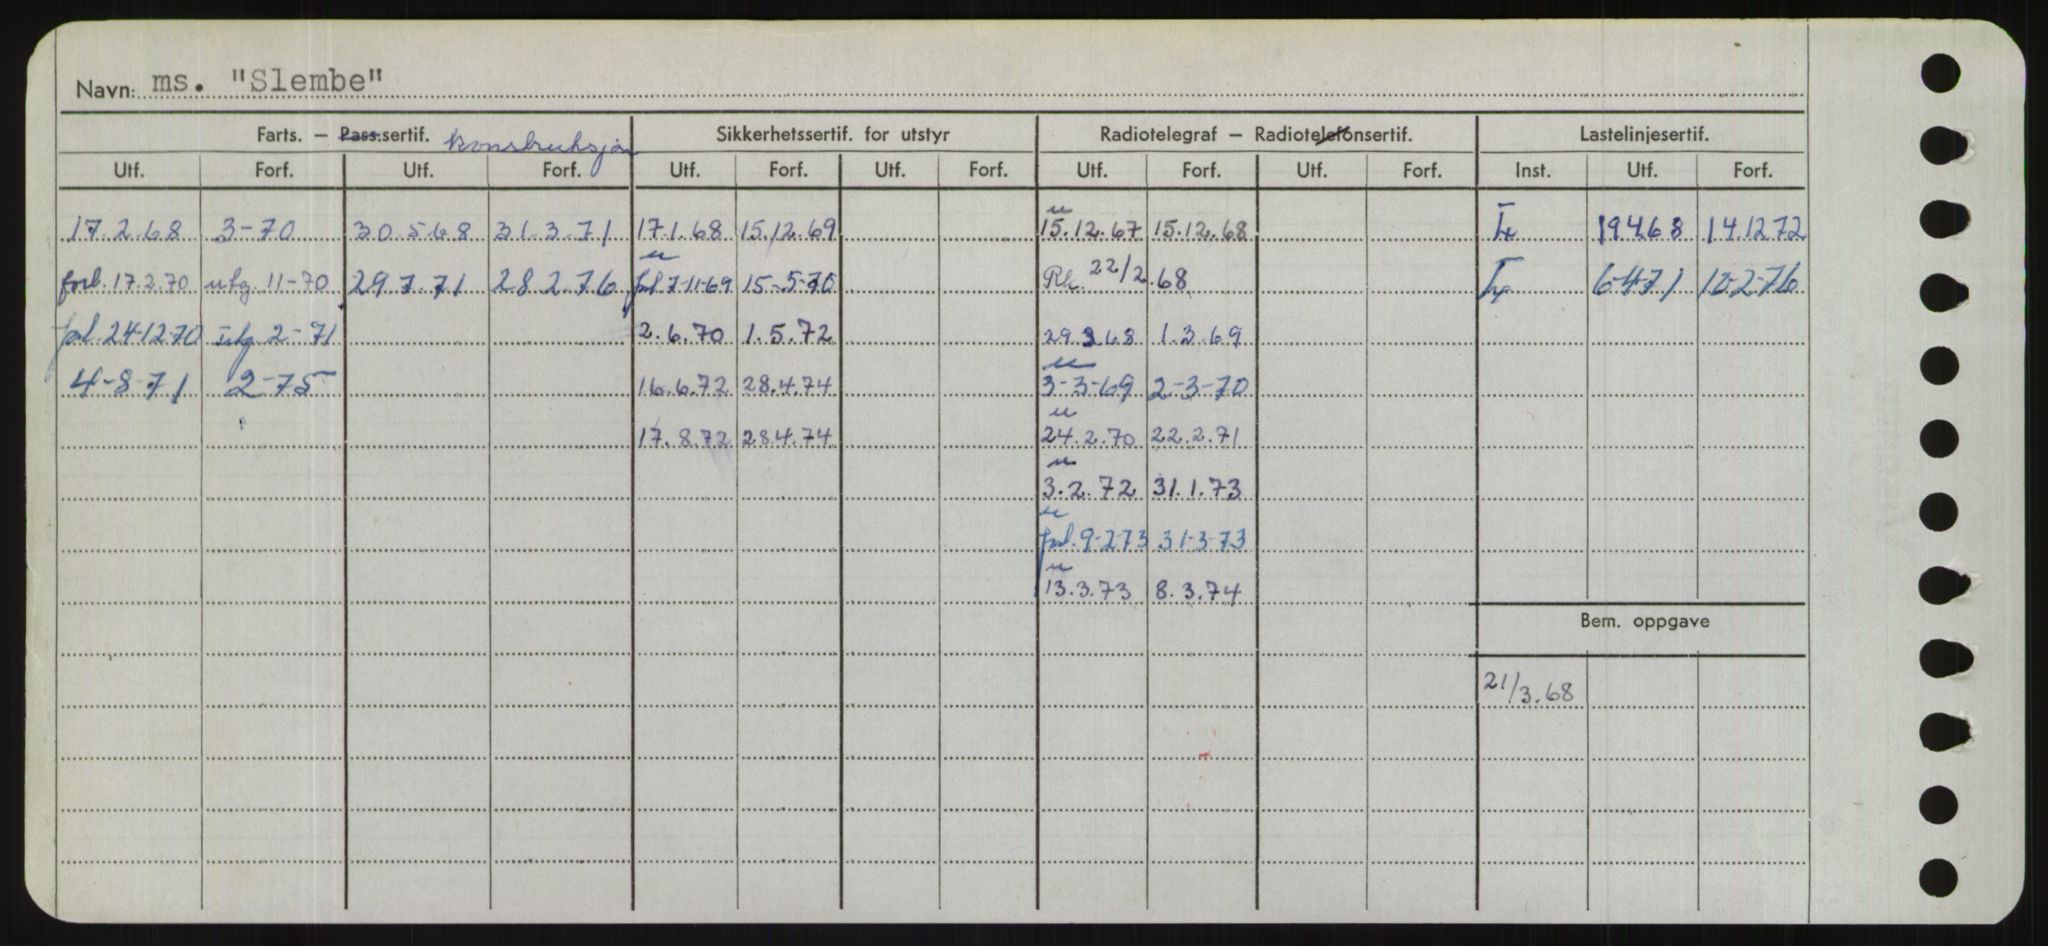 Navn: ms. "Slembe"
Farts. – Pass.sertif. konstruksjon Sikkerhetssertif. for utstyr Radiotelegraf – Radiotelefonsertif. Lastelinjesertif.
Utf. Forf. Utf. Forf. Utf. Forf. Utf. Forf. Utf. Forf. Utf. Forf. Inst. Utf. Forf.
17.2.68 3-70 30.5.68 31.3.71 17.1.68 15.12.69 15.12.67 15.12.68 19.4.68 14.12.72
forl. 17.2.70 utg. 11-70 29.7.71 28.2.76 forl. 7-11-69 15-5-70 22/2.68 6-4-71 10-2-76
forl. 24-12-70 utg. 2-71 2.6.70 1.5.72 29.3.68 1.3.69
4-8-71 2-75 16.6.72 28.4.74 3-3-69 2-3-70
17.8.72 28.4.74 24.2.70 22.2.71
3.2.72 31.1.73
forl. 9-2-73 31-3-73
13.3.73 8.3.74
Bem. oppgave
21/3.68